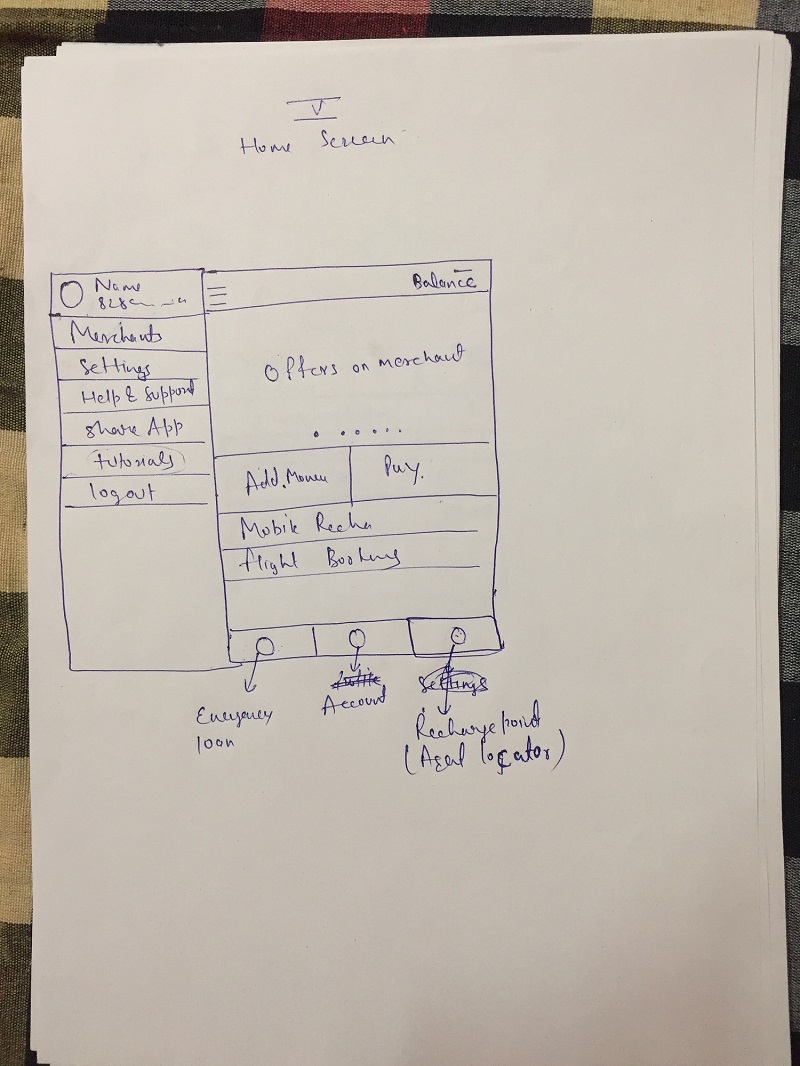 V
Home Screen
Name
Balance
Merchants
Settings
Help & Support
Share App
tutorials
logout
Offers on merchant
Add. Money
Pay.
Mobile Recha
flight Booking
Settings
Account
Emergency
loan
Recharge point
(Agent locator)